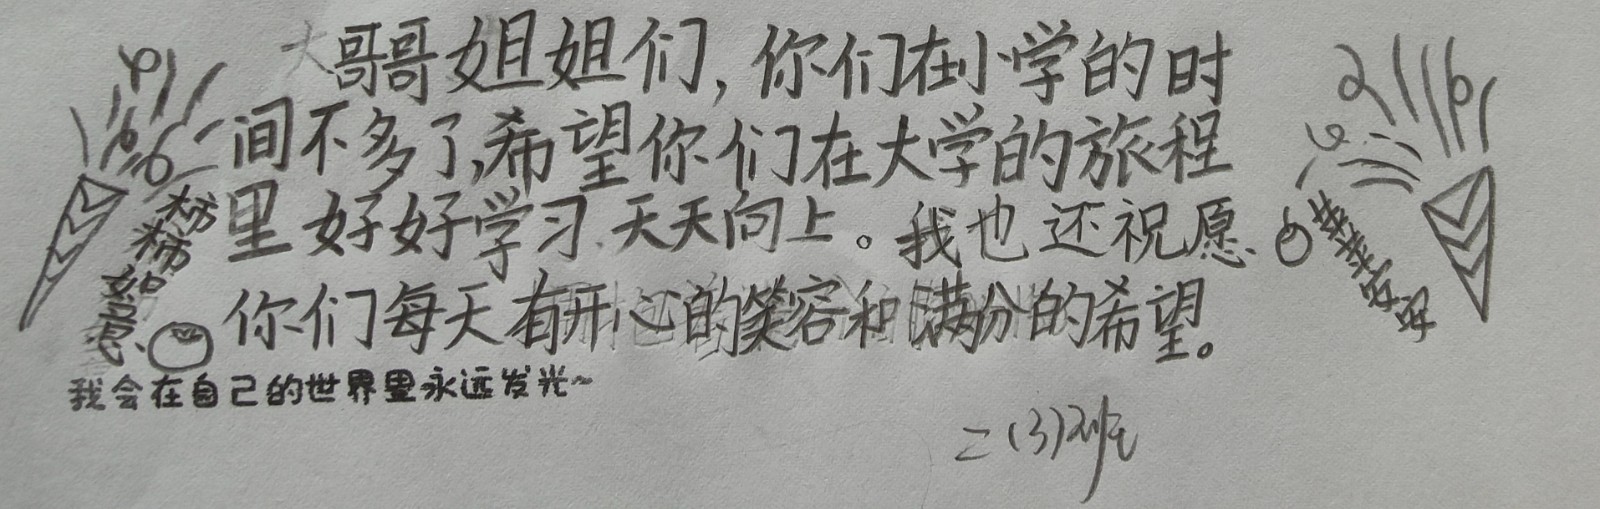 大哥哥姐姐们，你们在小学的时
间不多了，希望你们在大学的旅程
里好好学习.天天向上。我也还祝愿
你们每天有开心的笑容和满分的希望。
柿柿如意
我会在自己的世界里永远发光~
二(3)班